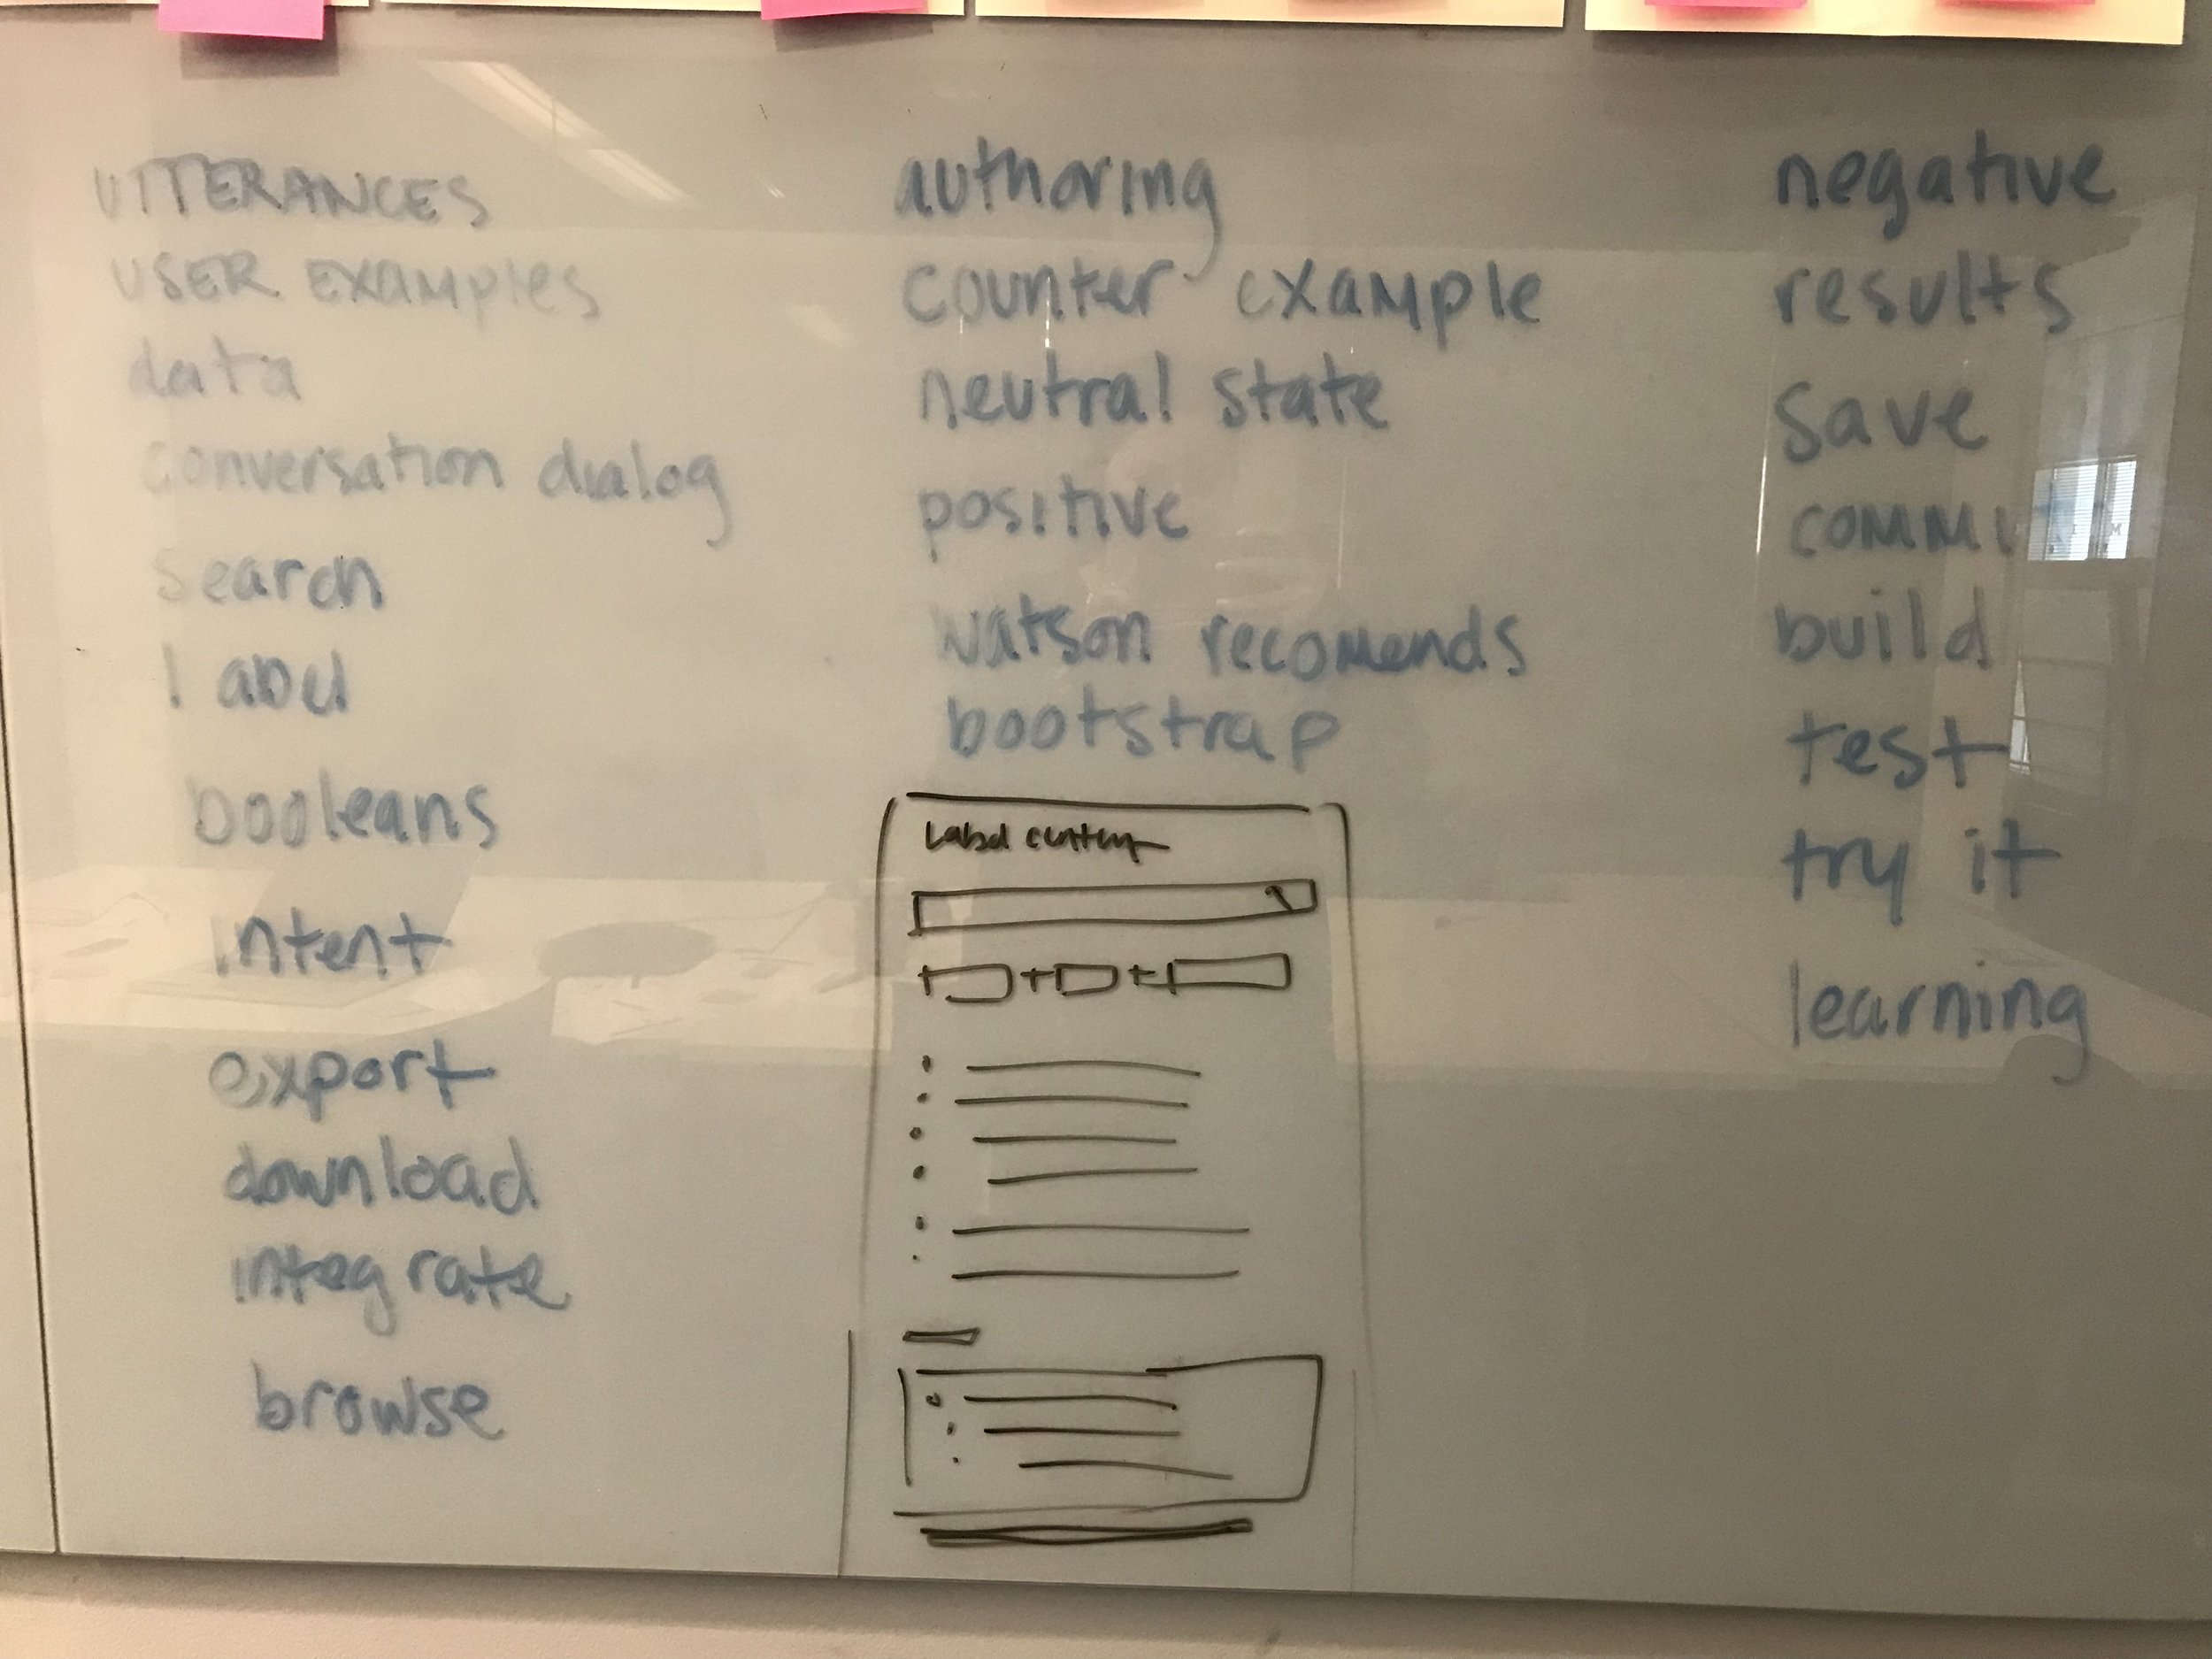 UTTERANCES
USER EXAMPLES
data
conversation dialog
search
label
booleans
intent
export
download
integrate
browse
authoring
counter example
neutral state
positive
watson recomends
bootstrap
Label
negative
results
save
build
test
try it
learning